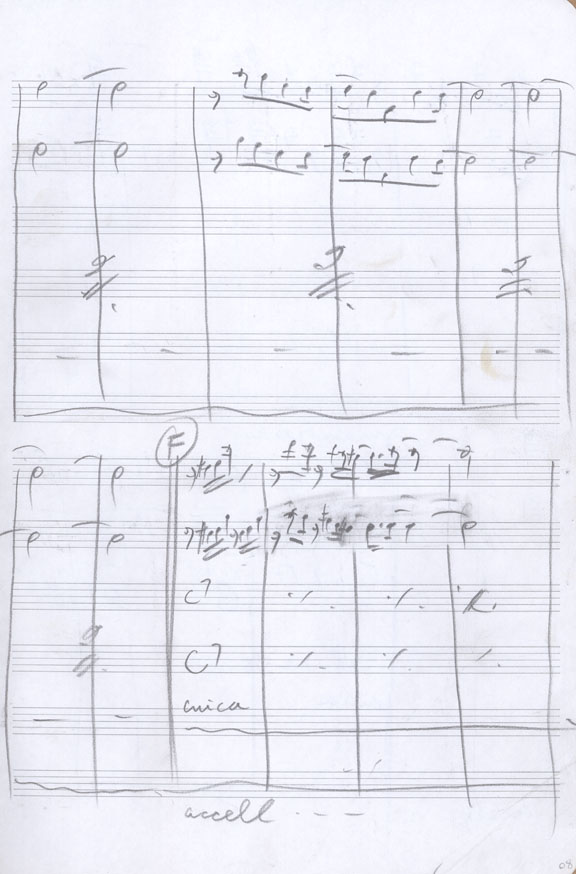 F
C7
C7
cuica
accell - - -